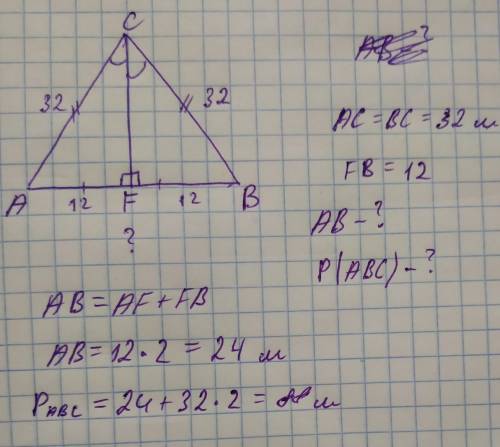 C
32
32
A
12
F
12
B
?
?
AC = BC = 32 м
FB = 12
AB - ?
P(ABC) - ?
AB = AF + FB
AB = 12 · 2 = 24 м
P ABC = 24 + 32 · 2 = м